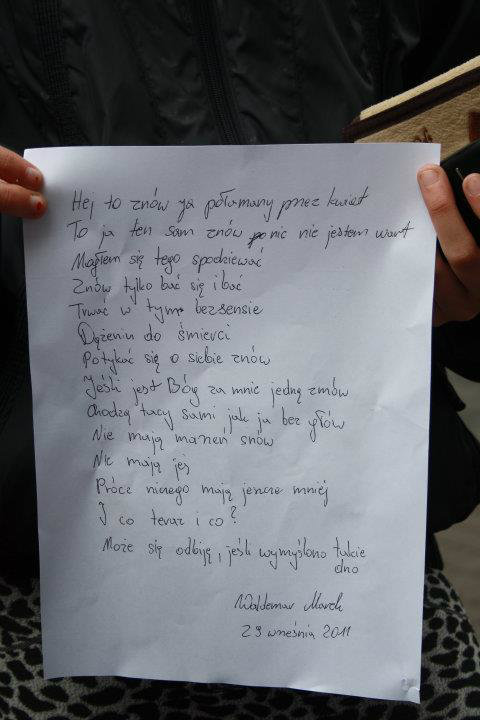 Hej to znów ja połamany przez kwiat
To ja ten sam znów nic nie jestem wart
Mogłem się tego spodziewać
Znów tylko bać się i bać
Trwać w tym bezsensie
Dążeniu do śmierci
Potykać się o siebie znów
Jeśli jest Bóg za mnie jedną zmów
Chodzą tacy sami jak ja bez głów
Nie mają marzeń snów
Nic mają jej
Prócz niczego mają jeszcze mniej
I co teraz i co?
Może się odbiję, jeśli wymyślono takie
dno
Waldemar Marek
29 września 2011